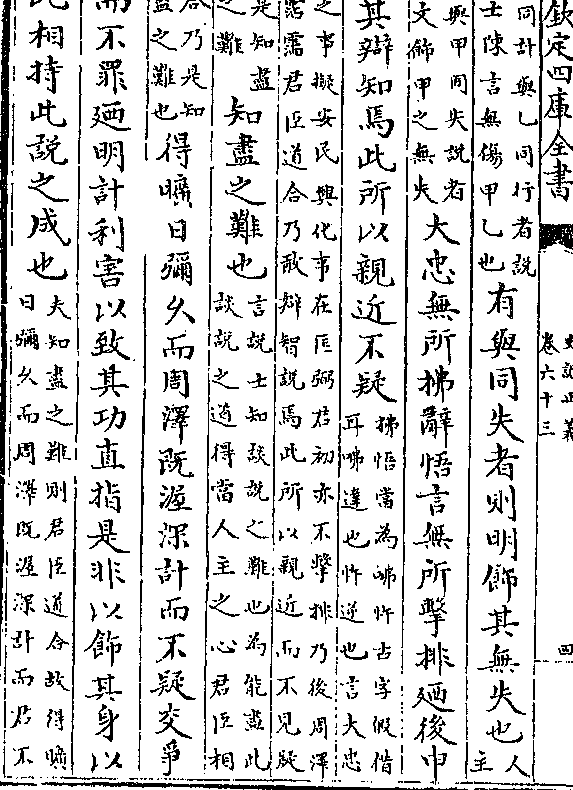 欽定四庫全書
史記正義
卷六十三
四
同計與乙同行者說
士陳言無傷甲乙也
有與同失者則明飾其無失也
人
主
與甲同失說者
文飾甲之無失
大忠無所拂辭悟言無所擊排廼後申
其辯知焉此所以親近不疑
拂悟當為咈忤古字假借
耳咈違也忤逆也言大忠
之事擬安民興化事在匡弼君初亦不擊排乃後周澤
霑濡君臣道合乃敢辯智說焉此所以親近而不見疑
是知盡
之難
知盡之難也
言說士知談說之難也為能盡此
談說之道得當人主之心君臣相
合乃是知
盡之難也
得曠日彌久而周澤既渥深計而不疑交爭
而不罪廼明計利害以致其功直指是非以飾其身以
此相持此說之成也
夫知盡之難則君臣道合故得曠
日彌久而周澤既渥深計而君不